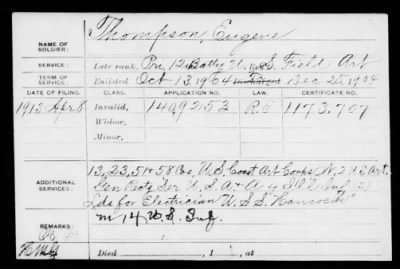 NAME OF SOLDIER: Thompson, Eugene
SERVICE: Late rank, Pri, 12 Batty U.S. Field Art
TERM OF SERVICE: Enlisted Oct 13, 1904 Dec 20, 1904
DATE OF FILING. CLASS. APPLICATION NO. LAW. CERTIFICATE NO.
1913 Apr 8 Invalid, 1409253 R.E 1173.707
Widow,
Minor,
ADDITIONAL SERVICES:
13, 23, 51 & 58 Cos, U.S. Coast Art Corps
Gen Rctg Ser U.S.A.
for Electrician U.S.S. "Hancock"
M 14 U.S. Inf.
REMARKS:
Died , 1 , at